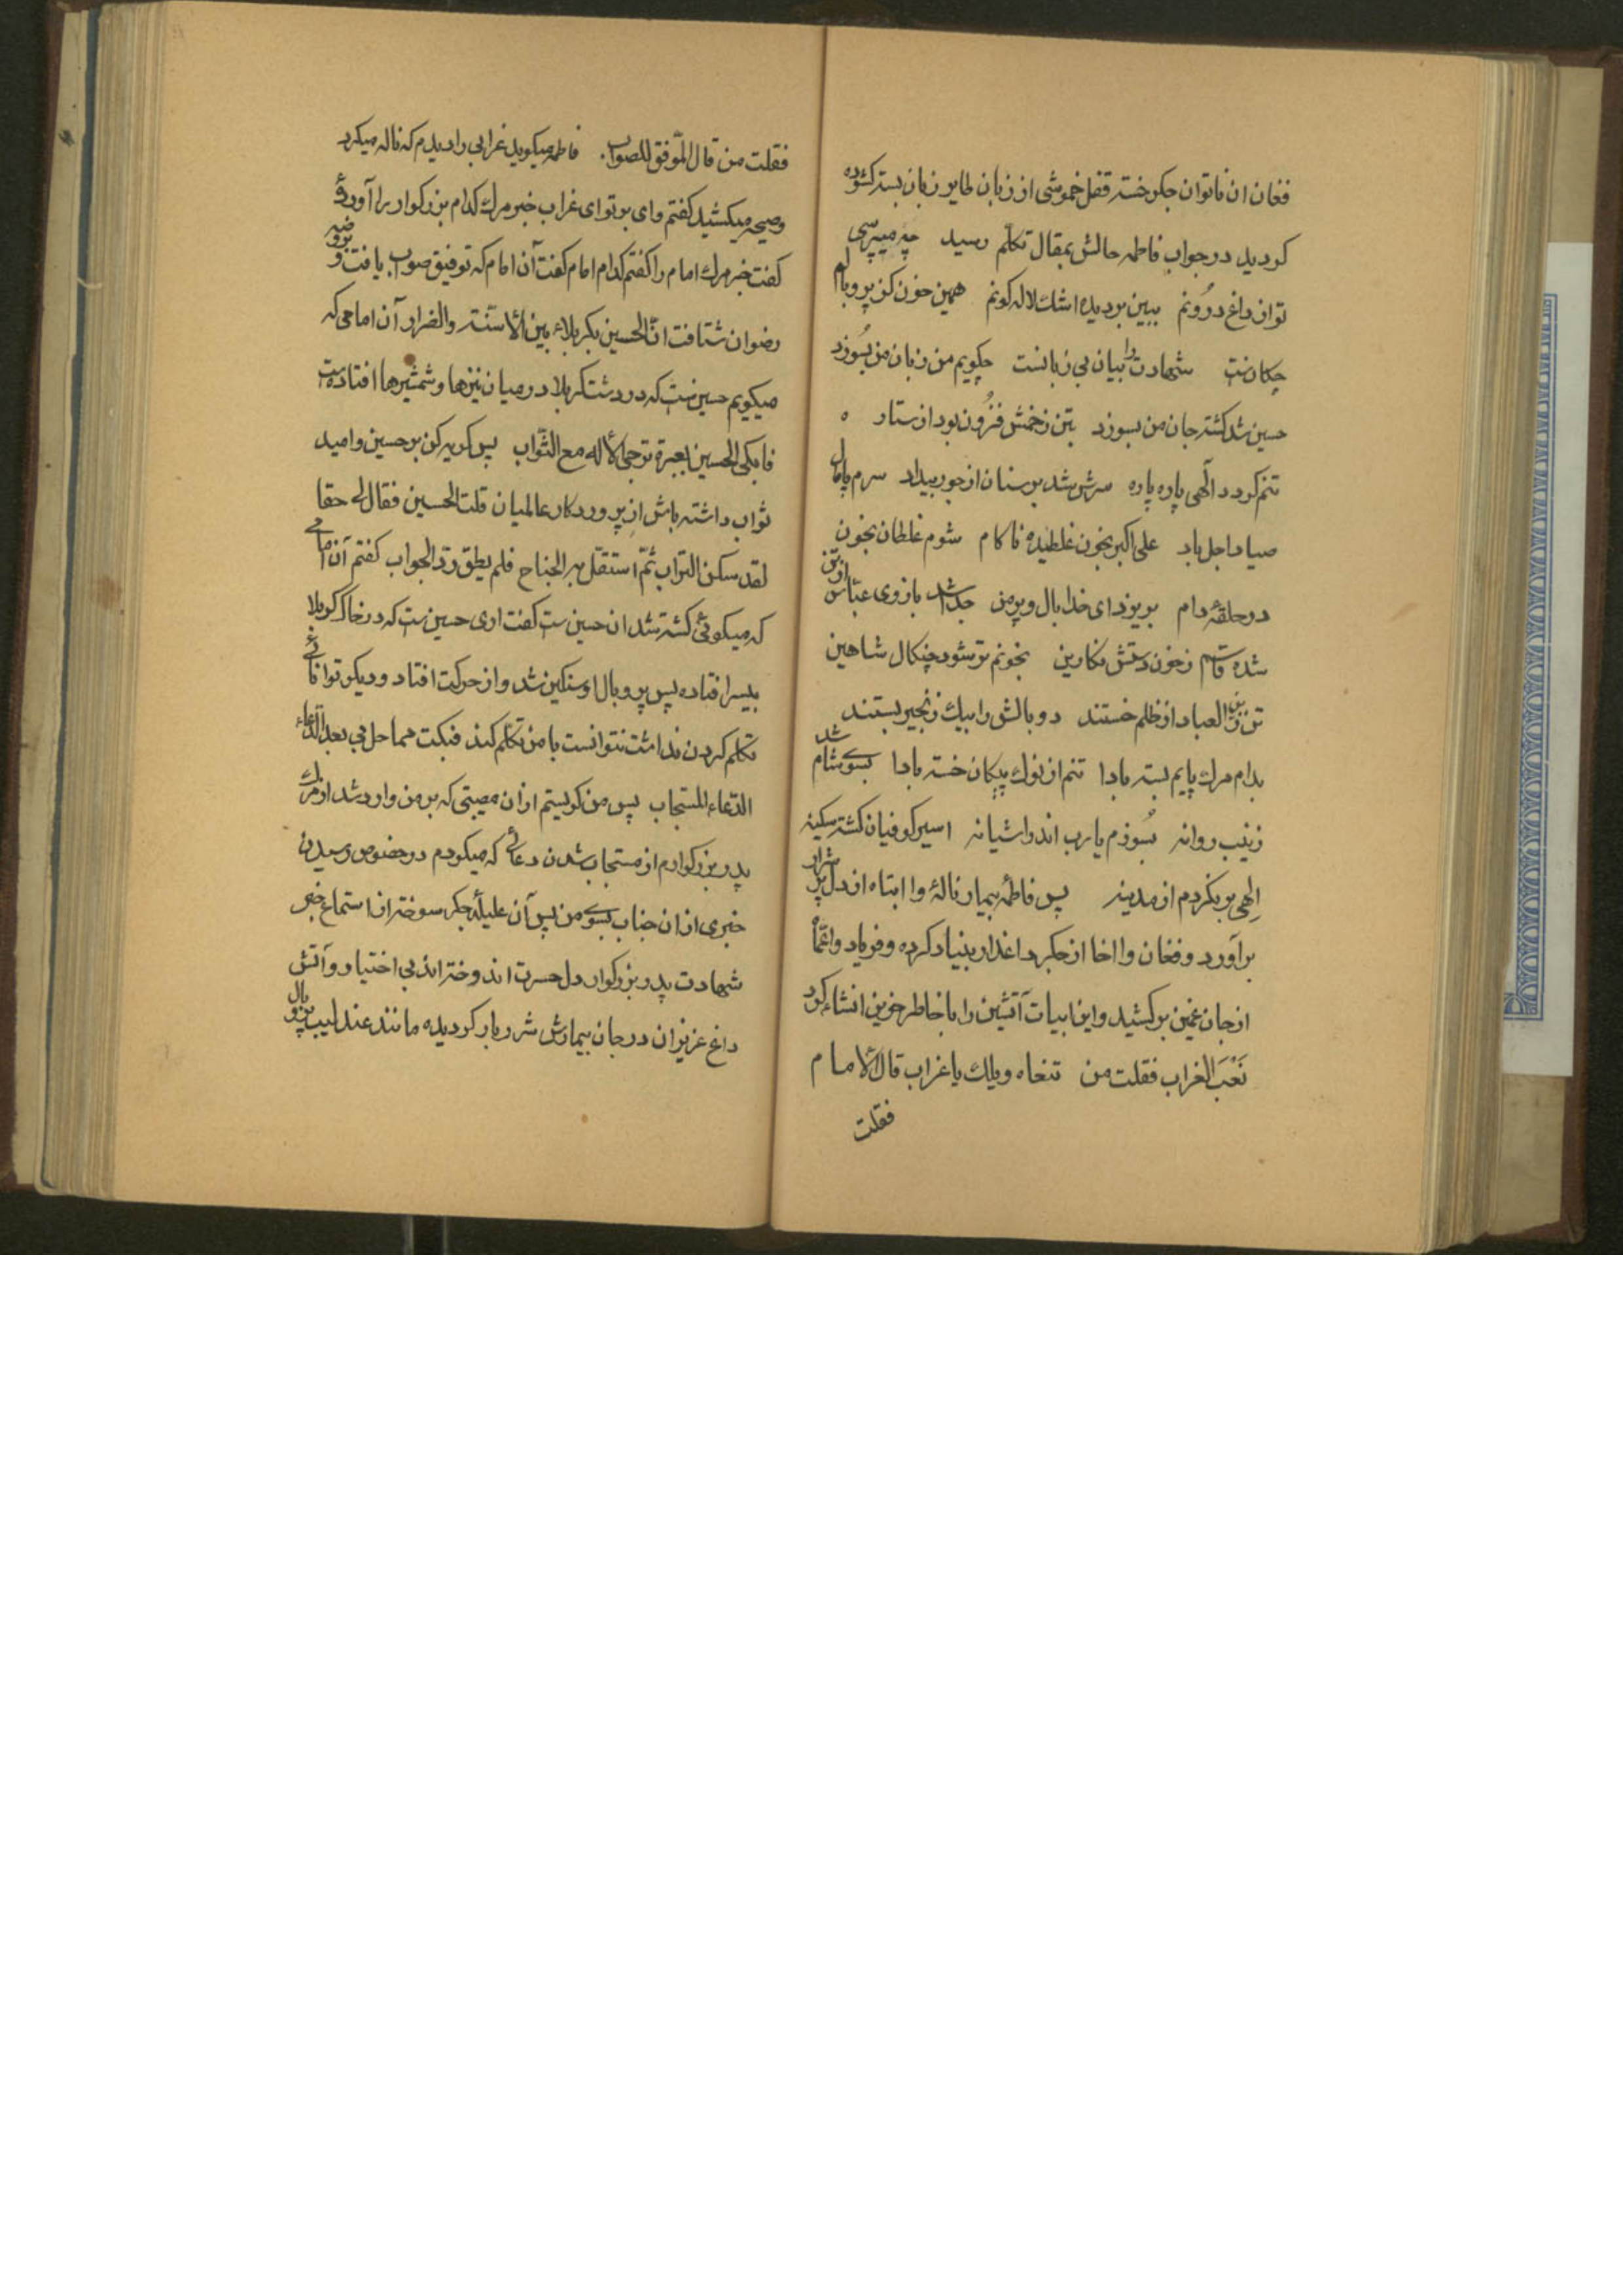 فغان ان ناتوان جکر خسته قفل خموشی از زبان طایر زبان بسته کشوده
کردید در جواب فاطمه حالش بمقال تکلّم رسید چه میپرسی
توان داغ درُونم ببین بر دیده اشك لاله کونم همین خون کز پر و بالم
چکانست شهادت را بیان بی زبانست چکویم من زبان من بسُوزد
حسین شد کشته جان من بسوزد بتن زخمش فزُون بود از ستاره
تنم کردد آلهی پاره پاره سرش شد بر سنان از جور بیداد سرم پامال
صیاد اجل باد علی اکبر بخون غلطیده ناکام شوم غلطان بخون
در حلقهٔ دام بریزد ای خدا بال و پر من جدا شد بازوی عبّاس از تن
شده قاسم زخون دستش نکارین بخونم تر شود چنکال شاهین
تن زین العباد از ظلم خستند دو بالش را بیك زنجیر بستند
بدام مرك پایم بسته بادا تنم از نوك پیکان خسته بادا بسوی شام شد
زینب روانه بسُوزم یا رب اندر اشیانه اسیر کوفیان کشته سکینه
الهی بر نکردم از مدینه پس فاطمهٔ بیمار نالهٔ وا ابتاه از دل پر شرار
برآورد و فغان وا اخا از جکر داغدار بنیاد کرده و فریاد واعمّاه
از جان غمین برکشید و این ابیات آتشین را با خاطر حزین انشاء کرد
نَعَبَ الغراب فقلت من تنعاه ویلك یا غراب قال الأمام
فقلت
فقلت من قال الموّفق للصواب. فاطمه میکوید غرابی را دیدم که ناله میکرد
وصیحه میکشید کفتم وای بر تو ای غراب خبر مرك کدام بزرکوار را آوردهٔ
کفت خبر مرك امام را کفتم کدام امام کفت آن امام که توفیق صواب یافت و بروضه
رضوان شتافت انّ الحسین بکربلاء بین الأسنّته والضراب آن امامی که
میکویم حسین ست که در دشت کربلا در میان نیزها و شمشیرها افتاده ست
فابکی الحسین بعبرة ترجی الأله مع الثّواب پس کریه کن بر حسین و امید
ثواب داشته باش از پروردکار عالمیان قلت الحسین فقال لی حقا
لقد سکن التراب ثمّ استقلّ به الجناح فلم یطق ردّ الجواب کفتم آن امامی
که میکوئی کشته شد ان حسین ست کفت اری حسین ست که در خاک کربلا
بیسر افتاده پس پر و بال او سنکین شد و از حرکت افتاد و دیکر توانائی
تکلم کردن نداشت نتوانست با من تکلّم کند فبکت مما حل بی بعد الدّعاء
الدّعاء المستجاب پس من کریستم از ان مصیبتی که بر من وارد شد از مرك
پدر بزرکوارم از مستجاب شدن دعائی که میکردم در خصوص رسیدن
خبری از ان جناب بسوی من پس آن علیلهٔ جکر سوخته از استماع خبر
شهادت پدر بزرکوار دل حسرت اندوخته اند بی اختیار و آتش
داغ عزیزان در جان بیمارش شرر بار کردیده مانند عندلیب بی پر و بال